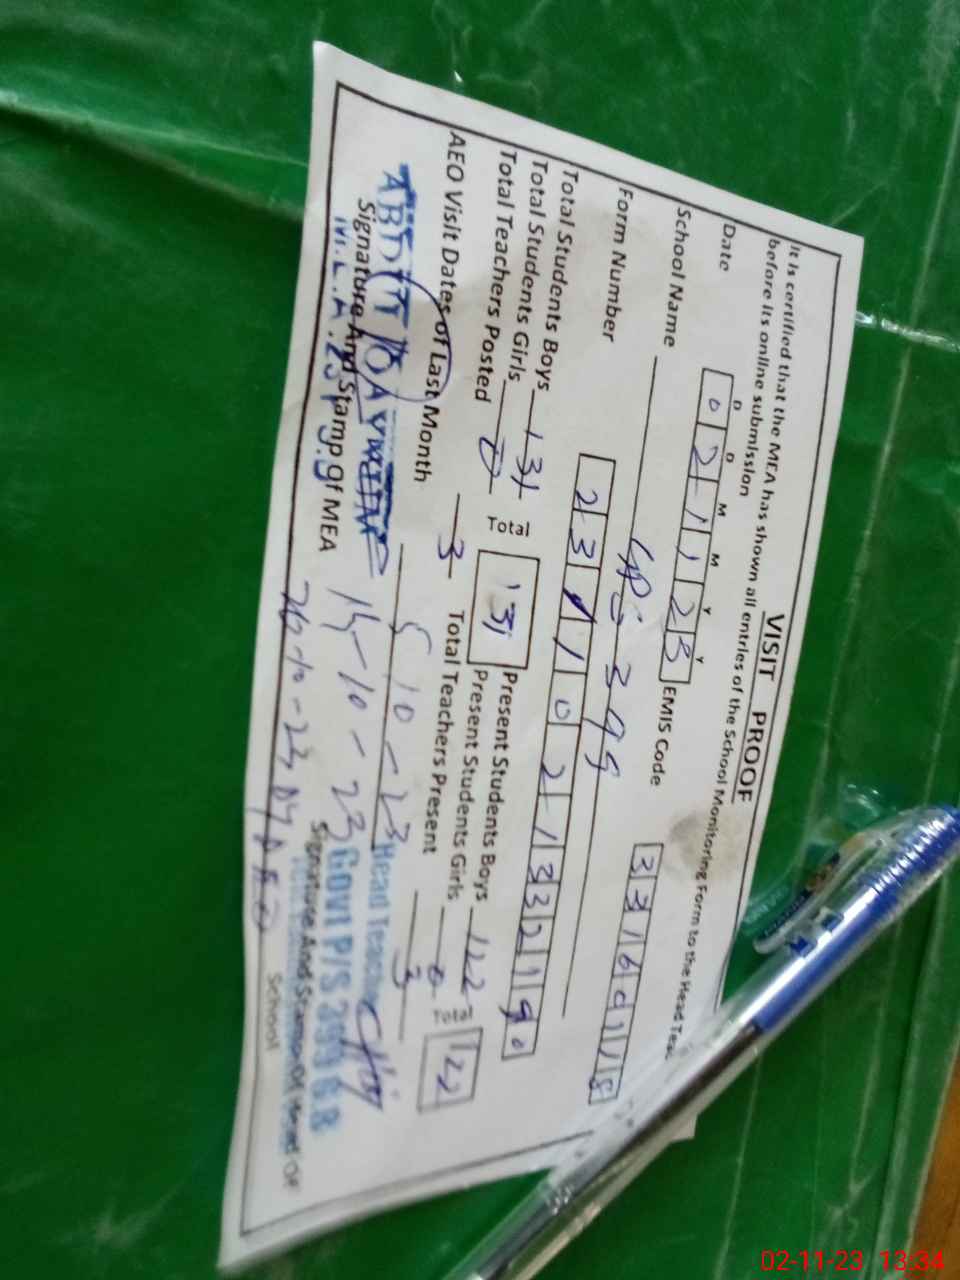 VISIT PROOF
It is certified that the MEA has shown all entries of the School Monitoring Form to the Head Teac
before its online submission
D D M M Y Y
Date 0 2 1 1 2 3 EMIS Code 3 3 1 6 0 1 1 8
School Name GPS 399
Form Number 2 3 1 1 0 2 1 3 3 2 1 9 0
Total Students Boys 131 Total 131 Present Students Boys 122 Total 122
Total Students Girls 0 Present Students Girls 0
Total Teachers Posted 3 Total Teachers Present 3
AEO Visit Dates of Last Month 5-10-23
15-10-23
26-10-23 By AEO
Signature And Stamp Of MEA
Head Teacher
Govt P/S 399 GB
Signature And Stamp Of Head Of
School
02-11-23 13:34